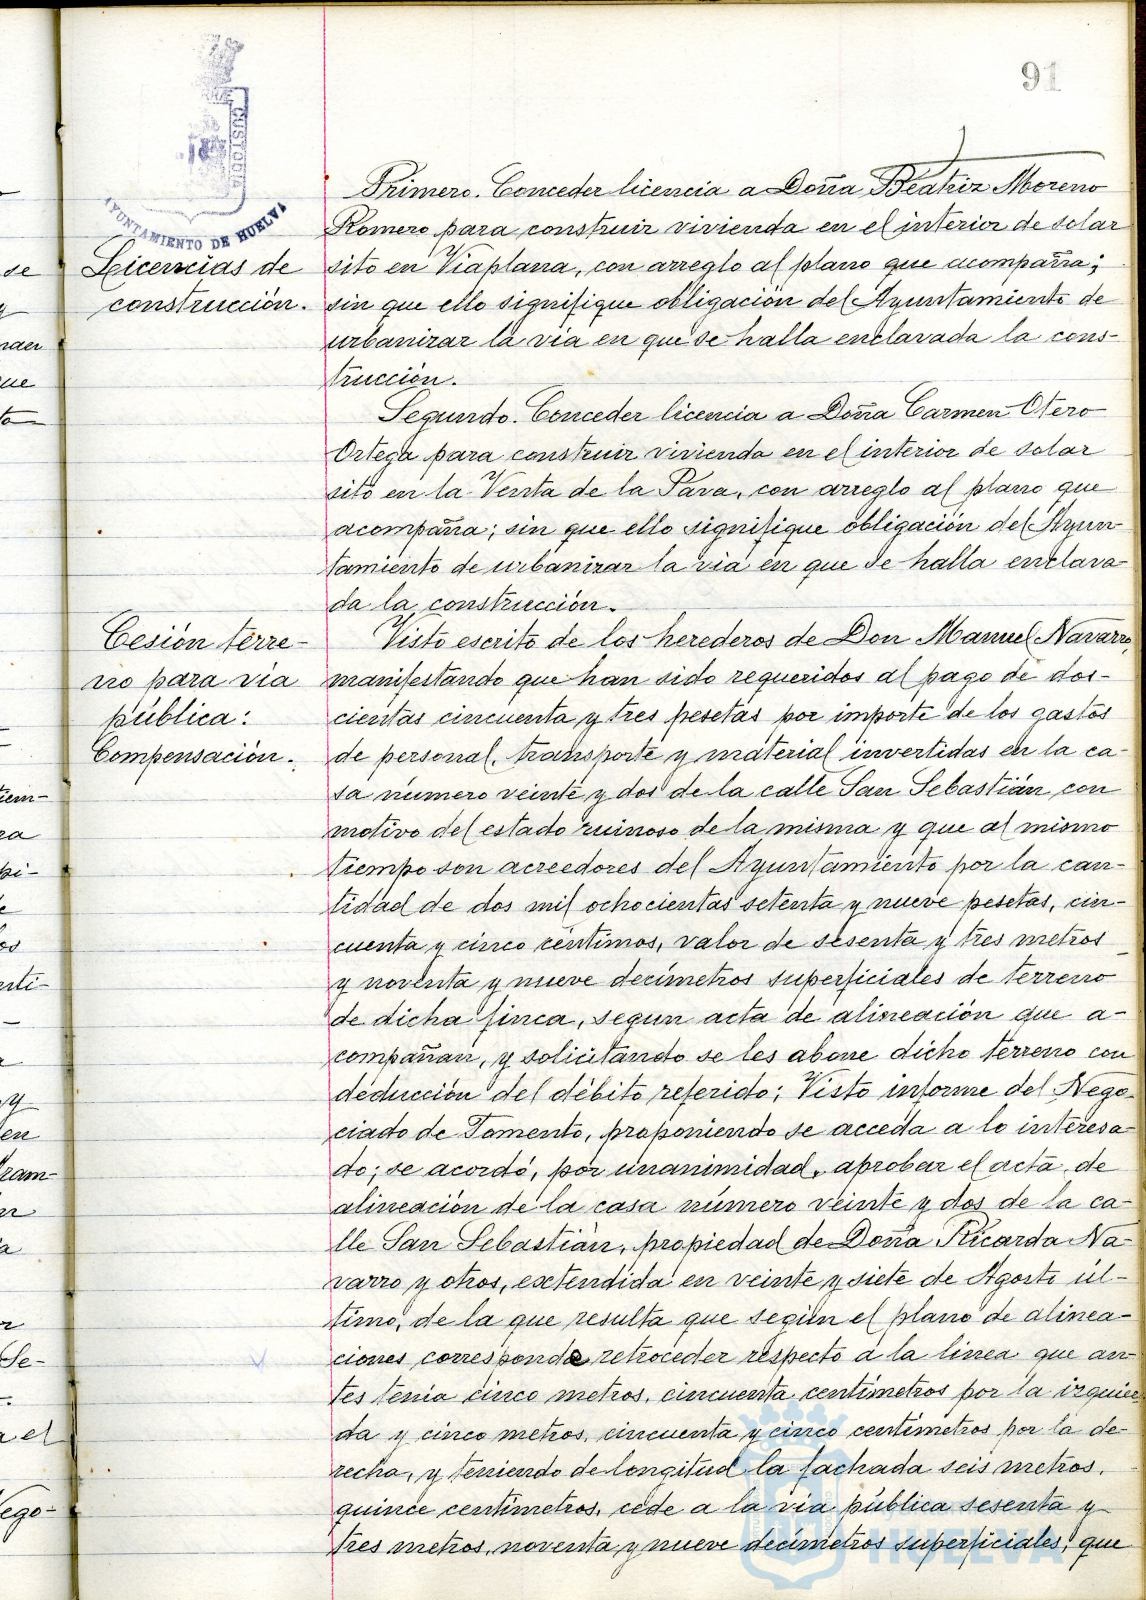 91
CUSTODIA
AYUNTAMIENTO DE HUELVA
Licencias de
construcción.
Primero. Conceder licencia a Doña Beatriz Moreno
Romero para construir vivienda en el interior de solar
sito en Viaplana, con arreglo al plano que acompaña;
sin que ello signifique obligación del Ayuntamiento de
urbanizar la via en que se halla enclavada la cons-
trucción.
Segundo. Conceder licencia a Doña Carmen Otero
Ortega para construir vivienda en el interior de solar
sito en la Venta de la Pava, con arreglo al plano que
acompaña; sin que ello signifique obligación del Ayun-
tamiento de urbanizar la via en que se halla enclava-
da la construcción.
Cesión terre-
no para via
pública:
Compensación.
Visto escrito de los herederos de Don Manuel Navarro,
manifestando que han sido requeridos al pago de dos-
cientas cincuenta y tres pesetas por importe de los gastos
de personal, transporte y material invertidas en la ca-
sa número veinte y dos de la calle San Sebastián con
motivo del estado ruinoso de la misma y que al mismo
tiempo son acreedores del Ayuntamiento por la can-
tidad de dos mil ochocientas setenta y nueve pesetas, cin-
cuenta y cinco céntimos, valor de sesenta y tres metros
y noventa y nueve decímetros superficiales de terreno
de dicha finca, segun acta de alineación que a-
compañan, y solicitando se les abone dicho terreno con
deducción del débito referido; Visto informe del Nego-
ciado de Fomento, proponiendo se acceda a lo interesa-
do; se acordó, por unanimidad, aprobar el acta de
alineación de la casa número veinte y dos de la ca-
lle San Sebastián, propiedad de Doña Ricarda Na-
varro y otros, extendida en veinte y siete de Agosto úl-
timo, de la que resulta que según el plano de alinea-
ciones corresponde retroceder respecto a la linea que an-
tes tenia cinco metros, cincuenta centímetros por la izquier-
da y cinco metros, cincuenta y cinco centímetros por la de-
recha, y teniendo de longitud la fachada seis metros,
quince centímetros, cede a la via pública sesenta y
tres metros, noventa y nueve decímetros superficiales, que
HUELVA